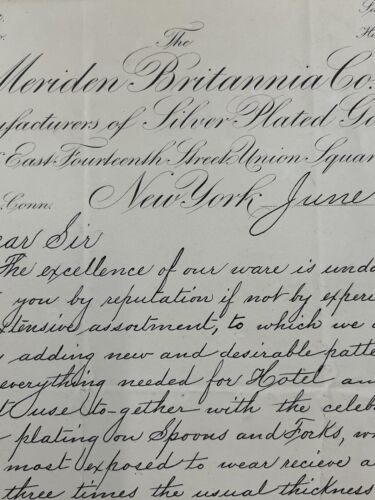 The
Meriden Britannia Co.
ufacturers of Silver Plated Go
East Fourteenth Street, Union Squar
Conn.
New York, June
ear Sir
The excellence of our ware is undo
you by reputation if not by experi
xtensive assortment, to which we a
adding new and desirable patte
everything needed for Hotel an
t use to-gether with the celeb
plating on Spoons and Forks, w
most exposed to wear recieve a
three times the usual thickness